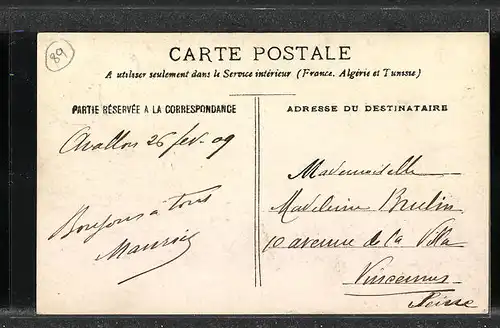 89
CARTE POSTALE
A utiliser seulement dans le Service intérieur (France, Algérie et Tunisie)
PARTIE RÉSERVÉE A LA CORRESPONDANCE
Avallon 26 fev. 09
Bonjour à tous
Maurice
ADRESSE DU DESTINATAIRE
Mademoiselle
Madeleine
10 avenue de la Villa
Vincennes
Seine